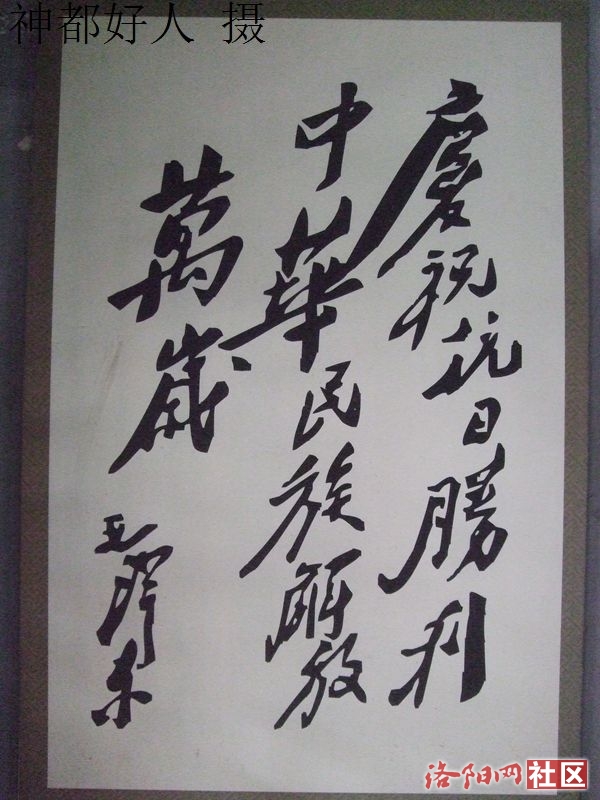 神都好人 摄
慶祝抗日勝利
中華民族解放
萬歲
毛澤东
洛阳网社区